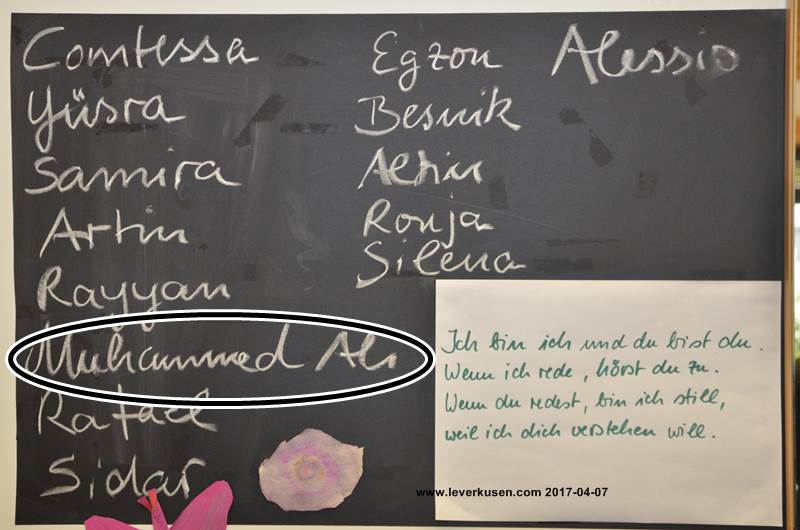 Comtessa
Yüsra
Samira
Artin
Rayyan
Muhammed Ali
Rafael
Sidar
Egzon
Besnik
Altin
Ronja
Silena
Alessio
Ich bin ich und du bist du.
Wenn ich rede, hörst du zu.
Wenn du redest, bin ich still,
weil ich dich verstehen will.
www.leverkusen.com 2017-04-07